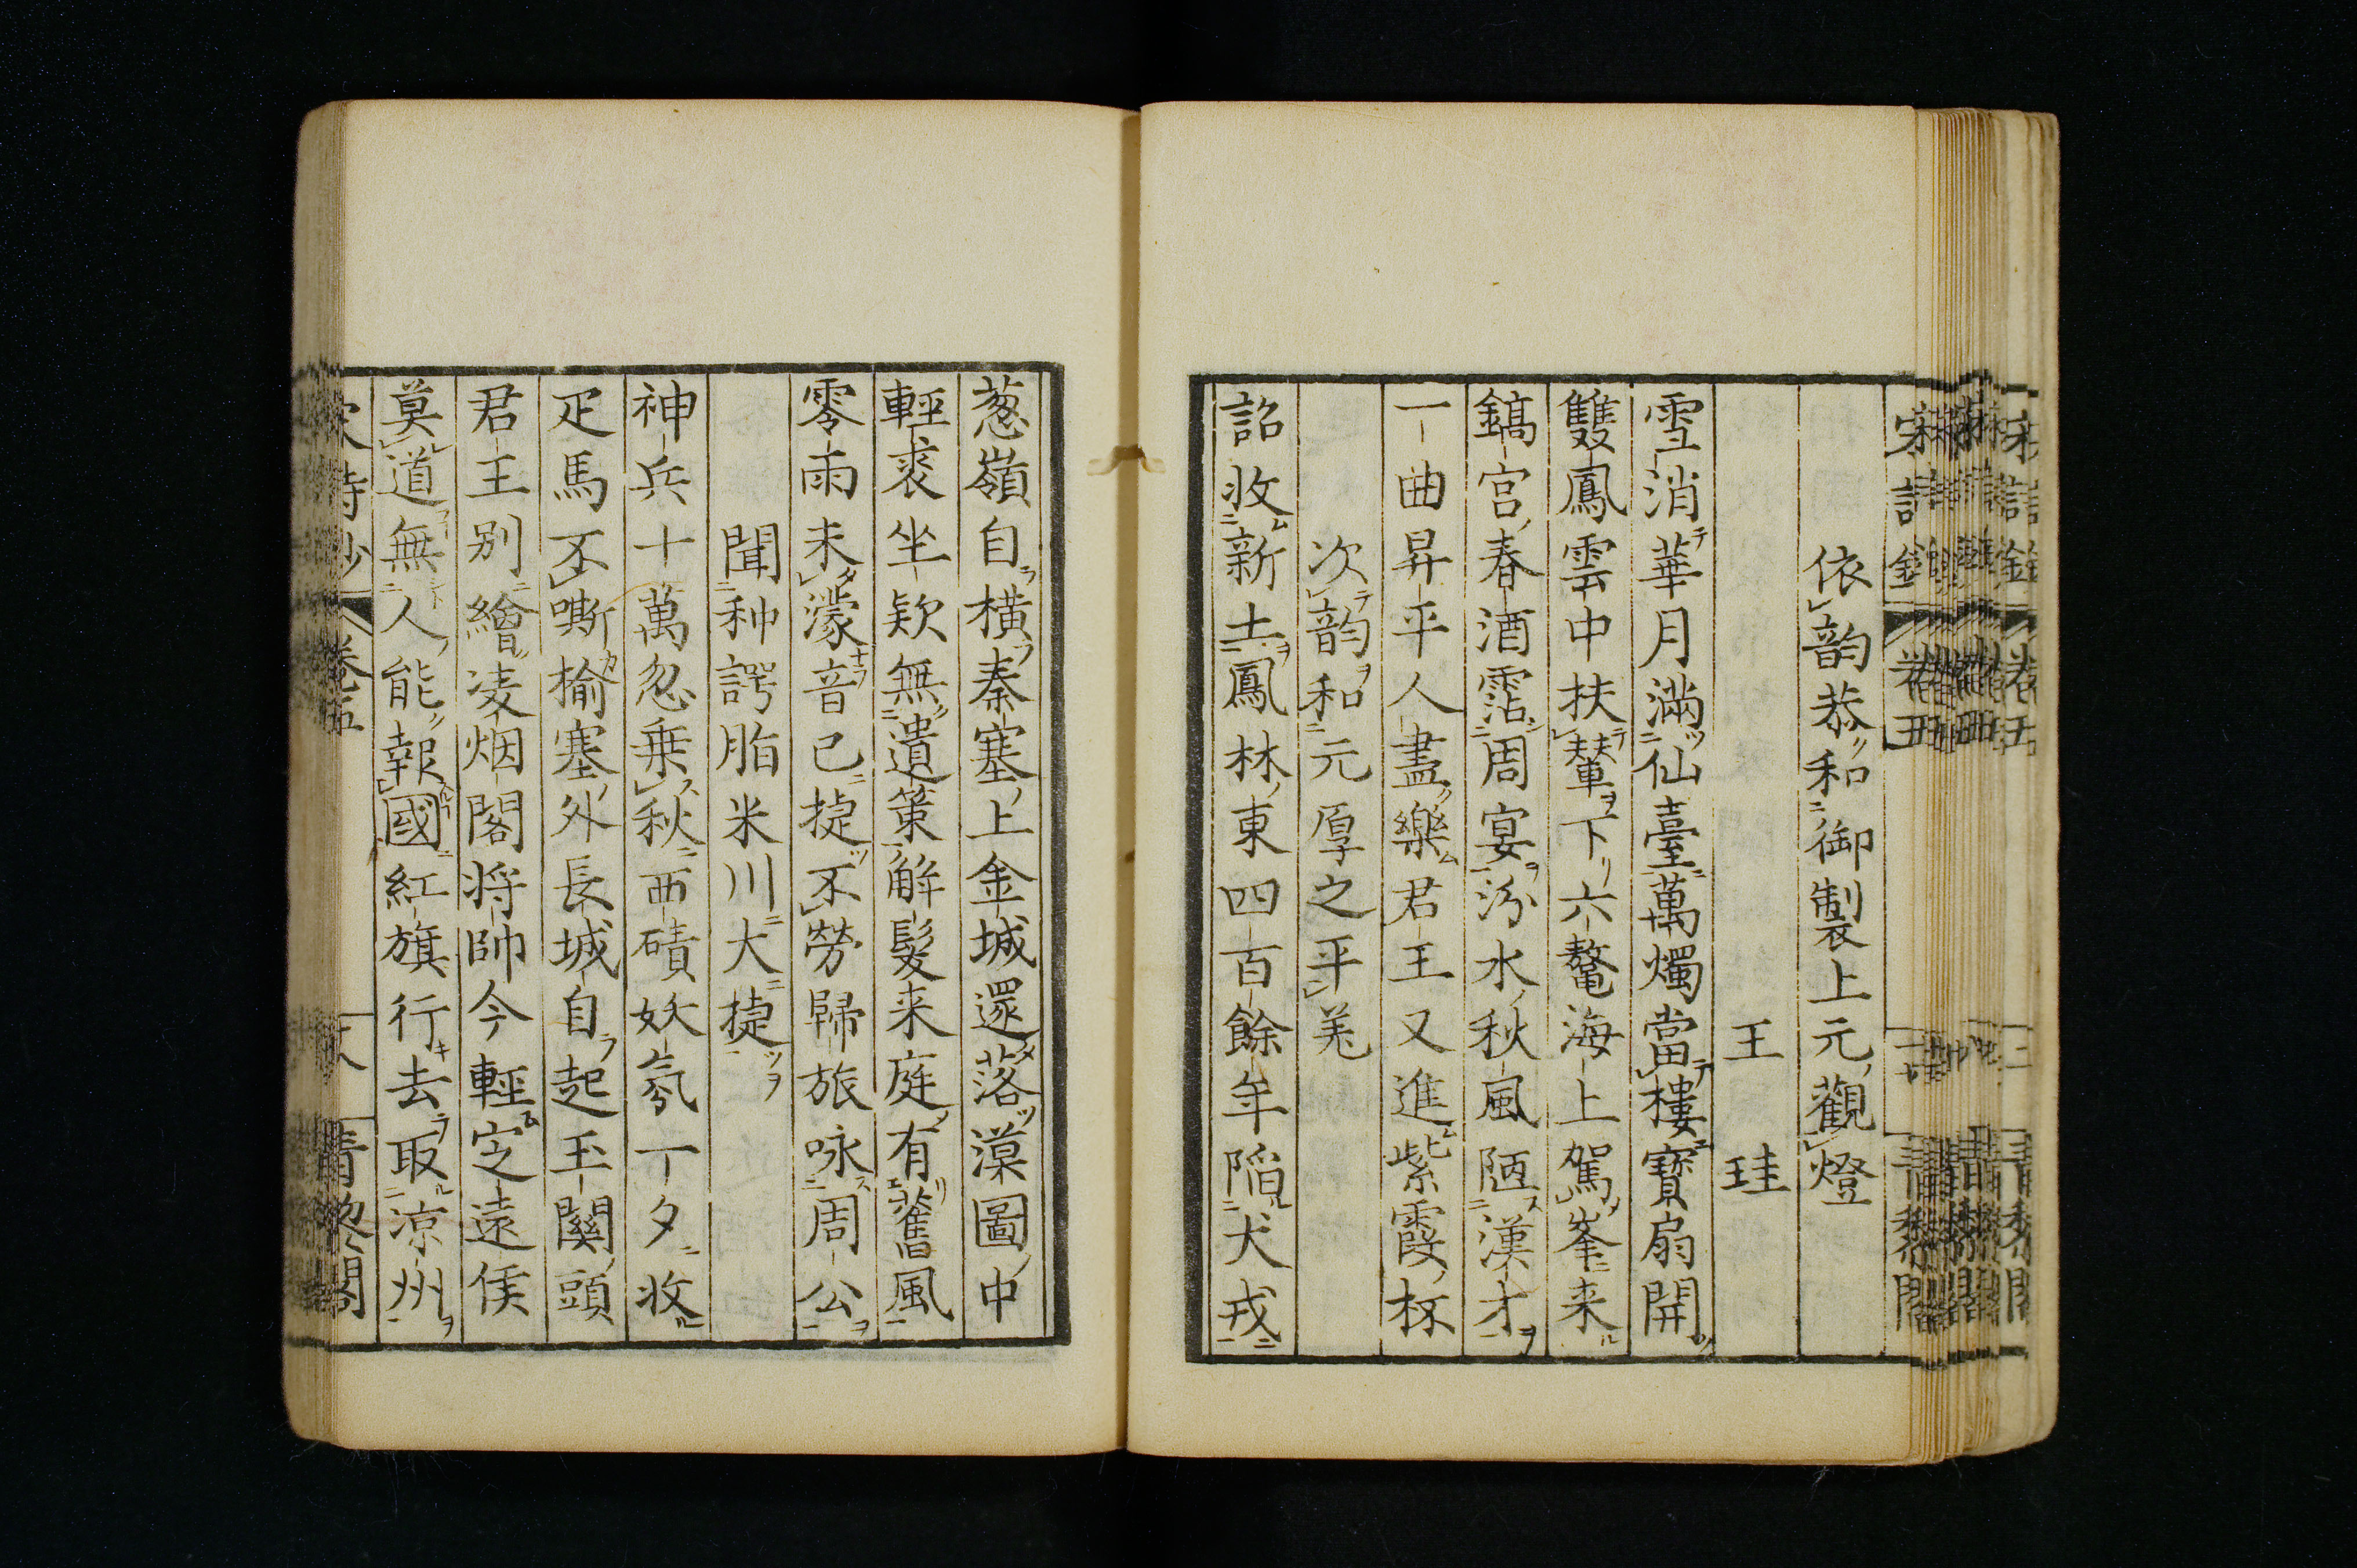 依韵恭和御製上元觀燈
王珪
雪消華月滿仙臺萬燭當樓寳扇開
雙鳳雲中扶輦下六鼇海上駕峯来
鎬宮春酒霑周宴汾水秋風陋漢才
一曲昇平人盡樂君王又進紫霞杯
次韵和元厚之平羌
詔收新土鳳林東四百餘年陷犬戎
葱嶺自横秦塞上金城還落漢圖中
輕裘坐欵無遺策觧髮来庭有舊風
零雨未濛音已捷不勞歸旅咏周公
聞种諤脂米川大捷
神兵十萬忽乗秋西磧妖氛一夕收
疋馬不嘶榆塞外長城自起玉關頭
君王别繪凌烟閣将帥今輕定遠侯
莫道無人能報國紅旗行去取凉州
宋詩鈔 卷五 十八 青黎閣